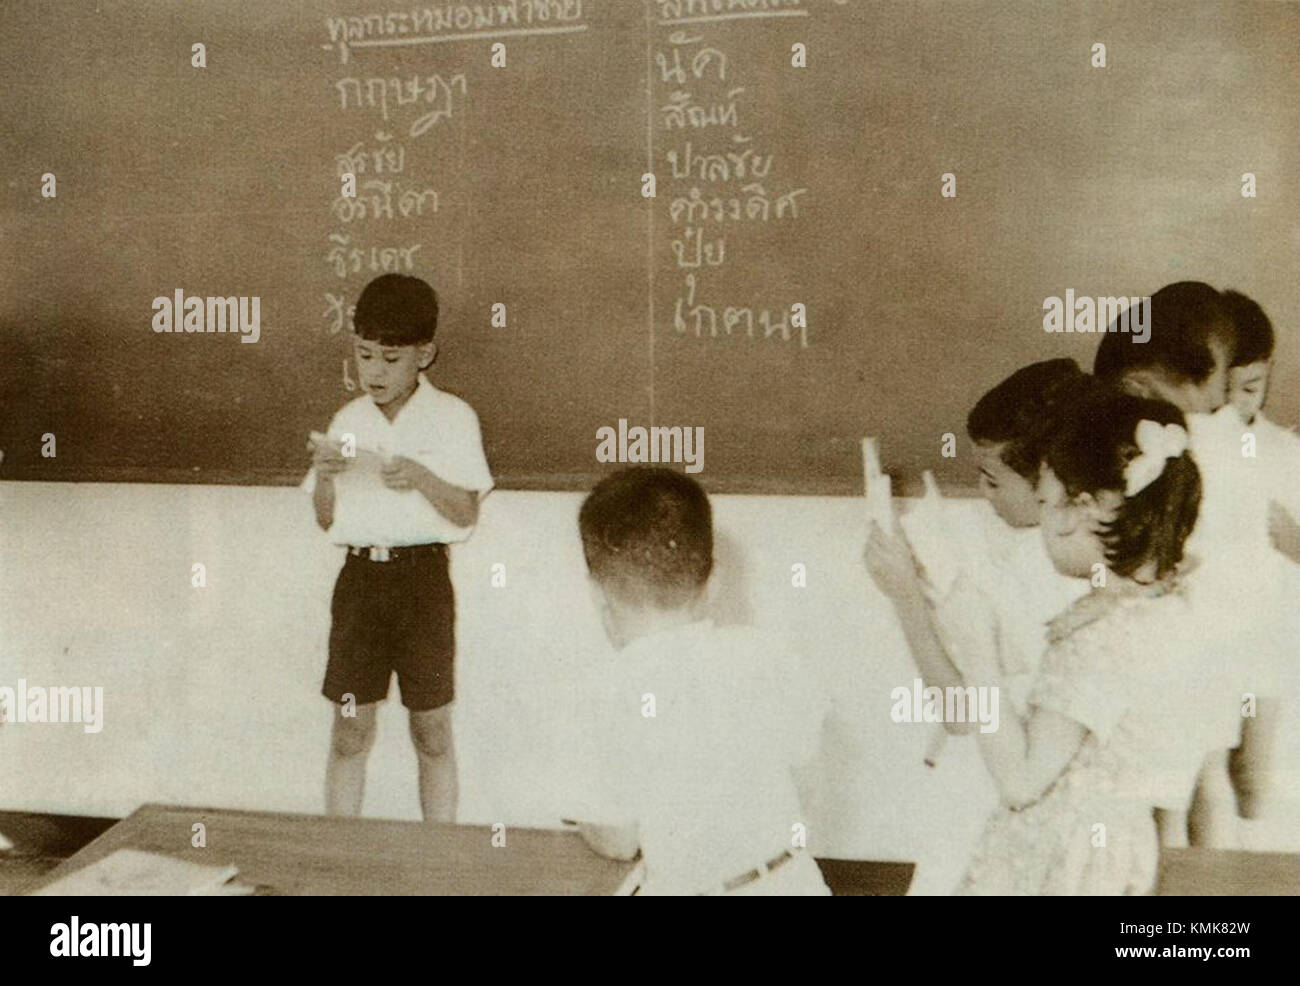 ทูลกระหม่อมฟ้าชาย
กฤษฎา
สุรชัย
อรนีดา
ธีรเดช
นัค
สัณห์
ปาลชัย
ดำรงดิศ
ปุ๋ย
เกตนา
a alamy stock photo
alamy stock photo
KMK82W
www.alamy.com